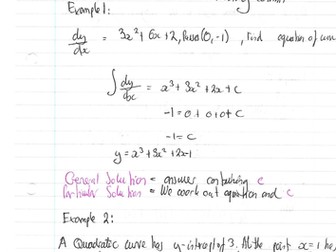 Example 1:
dy/dx = 3x² + 6x + 2, Passes (0, -1), Find equation of curve
∫ dy/dx = x³ + 3x² + 2x + C
-1 = 0 + 0 + 0 + C
-1 = C
y = x³ + 3x² + 2x - 1
General Solution = answer containing C
Particular Solution = We work out equation and C
Example 2:
A Quadratic curve has y-intercept of 3. At the point x = 1 has